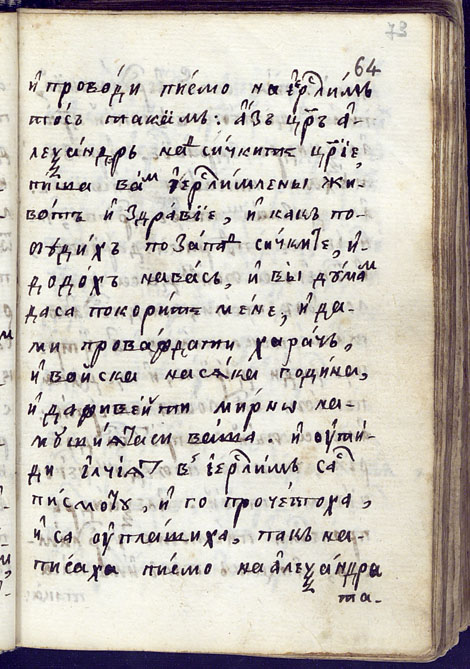 73
64
и҆ проводи писмо на і҆ер҃слимъ
тос такъмъ: а҆зъ цр҃ъ а҆-
леѯандеръ наⷣ сичките цр҃їе,
пиша ваⷨ і҆ер҃слимлены жи-
вотъ и҆ здравїе, и҆ какъ по-
ѹдихъ по запаⷣ сичките, и҆
додохъ навась, и҆ вы дꙋмаⷨ
даса покорите мене, и҆ да-
ми провождати харачъ,
и҆ войска насѧка година,
и҆ да живейти мирны на-
мꙋ҆ш҆иѧтаси ваша. и҆ ѹти-
ди и҆лчїѧт в і҆ер҃слимъ саⷭ҇
писмоту, и҆ го прочетоха,
и҆ са ѹплашиха, пакъ на-
писаха писмо на а҆леѯандра
та-